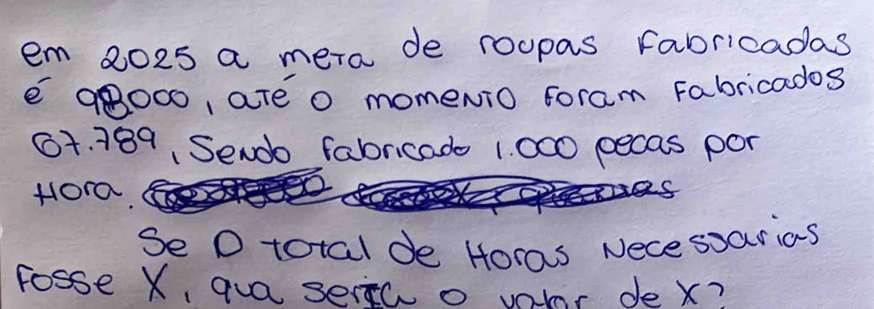 em 2025 a meta de roupas Fabricadas
é 98.000, até o momento foram Fabricados
67.789, Sendo fabricado 1.000 pecas por
Hora.
Se O total de Horas Necessarias
Fosse X, qua seria o valor de X?